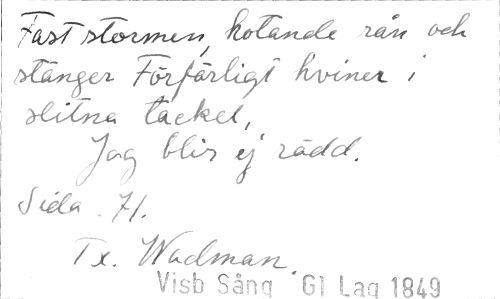 Fast stormen, hotande rån och
stänger Förfärligt hviner i
slitna tackel,
Jag blir ej rädd.
Sida 71.
Tx. Wadman.
Visb Sång Gl Lag 1849